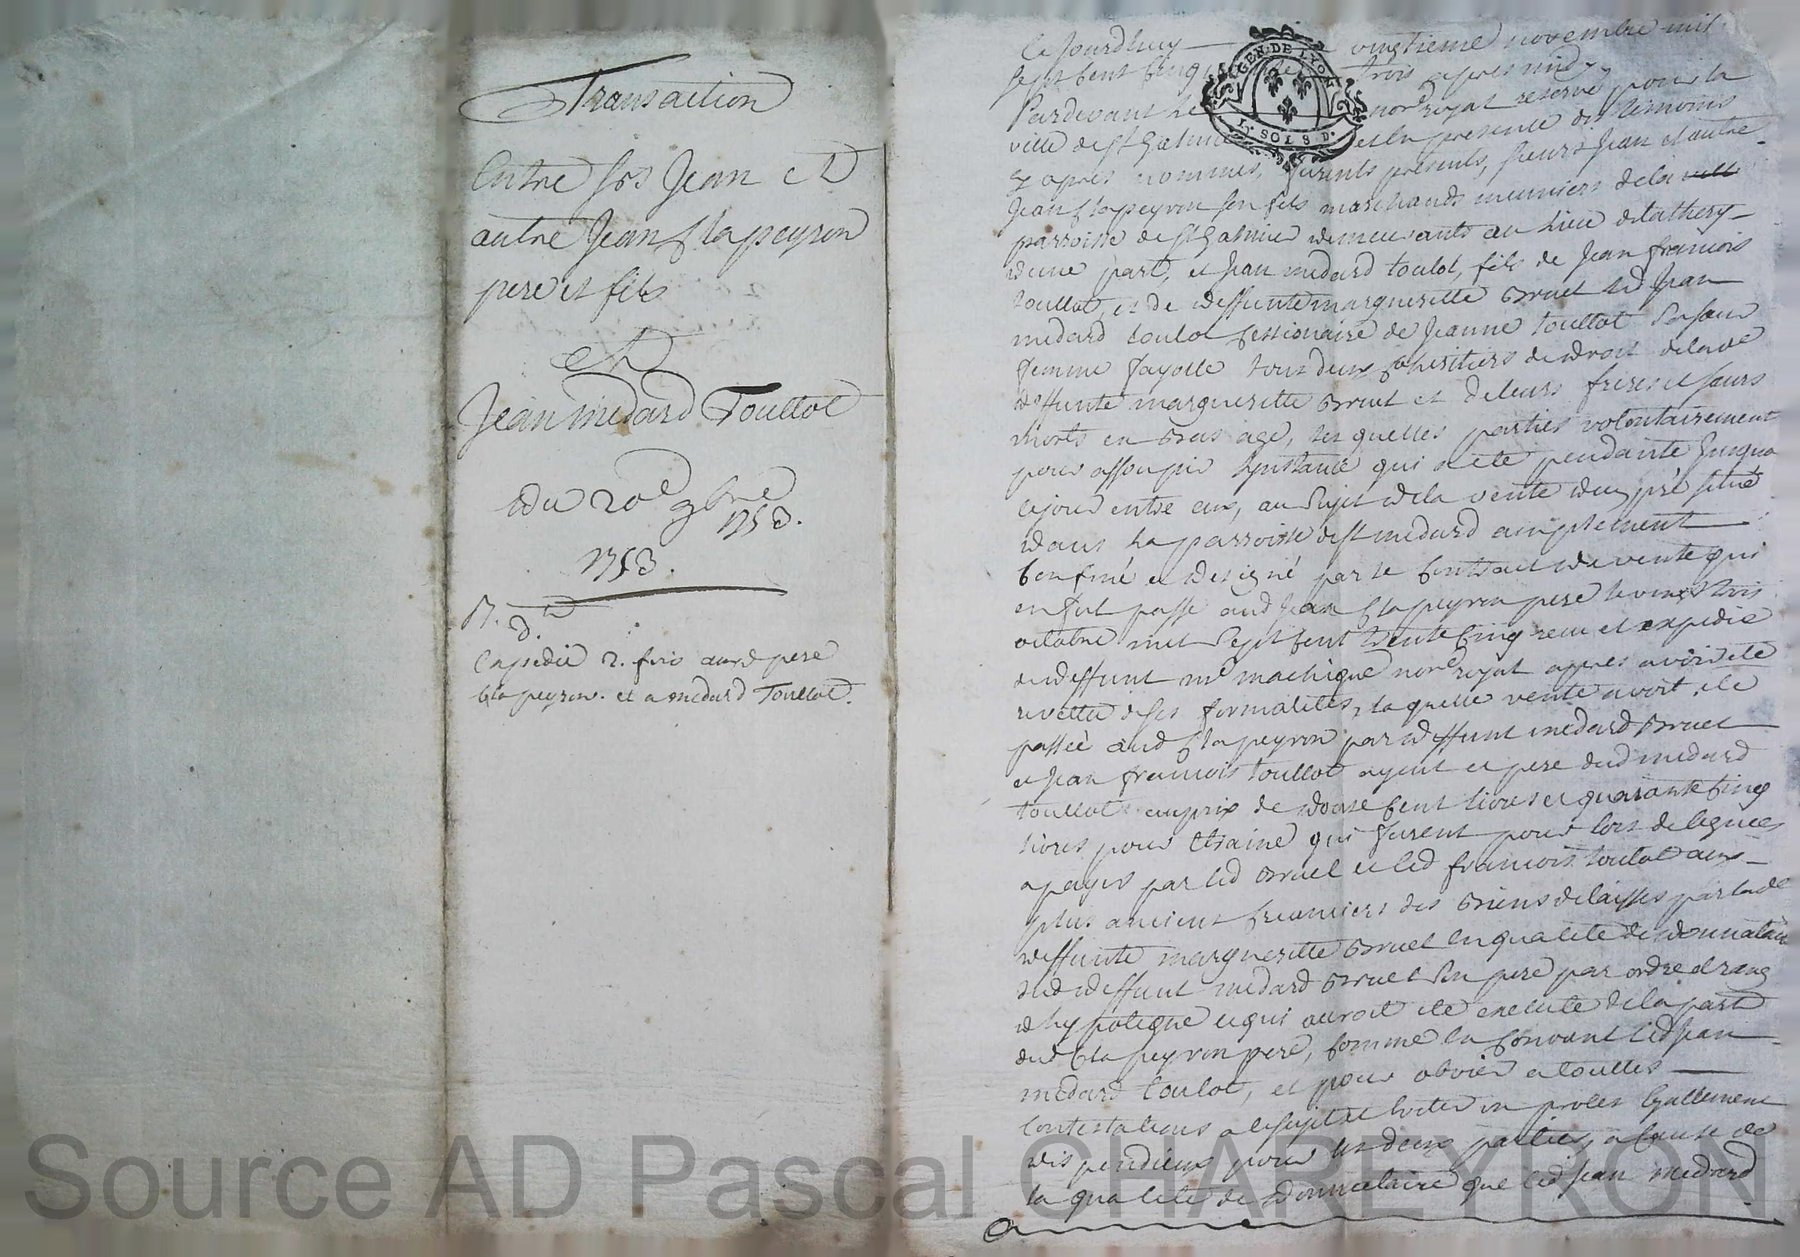 Transaction
Entre srs Jean et
autre Jean Clapeyron
pere et fils
et
Jean medard Toullot
du 20e 9bre
1753.
1753.
Expedié 2. fois aud pere
Clapeyron. et a medard Toullot.
Ce Jourdhuy vingtieme novembre mil
sept cent cinq trois apres midy
Pardevant le nore royal reservé pour la
ville de st Galmier et en presence des temoins
cy apres nommés, furent présents, sieurs Jean et autre
Jean Clapeyron son fils marchands meuniers de la
parroisse de st Galmier demeurants au lieu de
dune part, et Jean medard toulot, fils de Jean francois
toullot, et de deffunte margueritte Bruel led Jean
medard toulot cessionaire de Jeanne toullot sa soeur
femme fayolle tous deux cohéritiers de droit de lade
deffunte margueritte Bruel et de leurs freres et soeurs
morts en bas age, lesquelles parties volontairement
pour assoupir linstance qui a eté pendante Jusqua
ce jour entre eux, au sujet de la vente dun pré situé
dans la parroisse de st medard amplement
Confiné et designé par le Contract de vente qui
en fut passé aud Jean Clapeyron pere le vingt trois
octobre mil sept cent trente cinq receu et expedié
deffunt me nore royal apres avoir eté
revettu de ses formalités, laquelle vente avoit eté
passée aud Clapeyron par deffunt medard Bruel
et Jean francois toullot ayeul et pere dud medard
toullot au prix de douse cent livres et quarante cinq
livres pour etraine qui furent pour lors deleguées
a payer par led Bruel et led francois toulot aux
plus anciens creanciers des Biens delaissés par lade
deffunte margueritte Bruel en qualité de donnataire
dud deffunt medard Bruel son pere par ordre et rang
dhypoteque ce qui auroit eté executé de la part
dud Clapeyron pere, comme en convient led Jean
medard toulot, et pour obvier a touttes
Contestations a ce sujet et eviter un procès Egallement
dispendieux pour les deux parties, a cause de
la qualité de donnataire que led Jean medard
GEN. DE LYON
SOLS D.
Source AD Pascal CHAREYRON